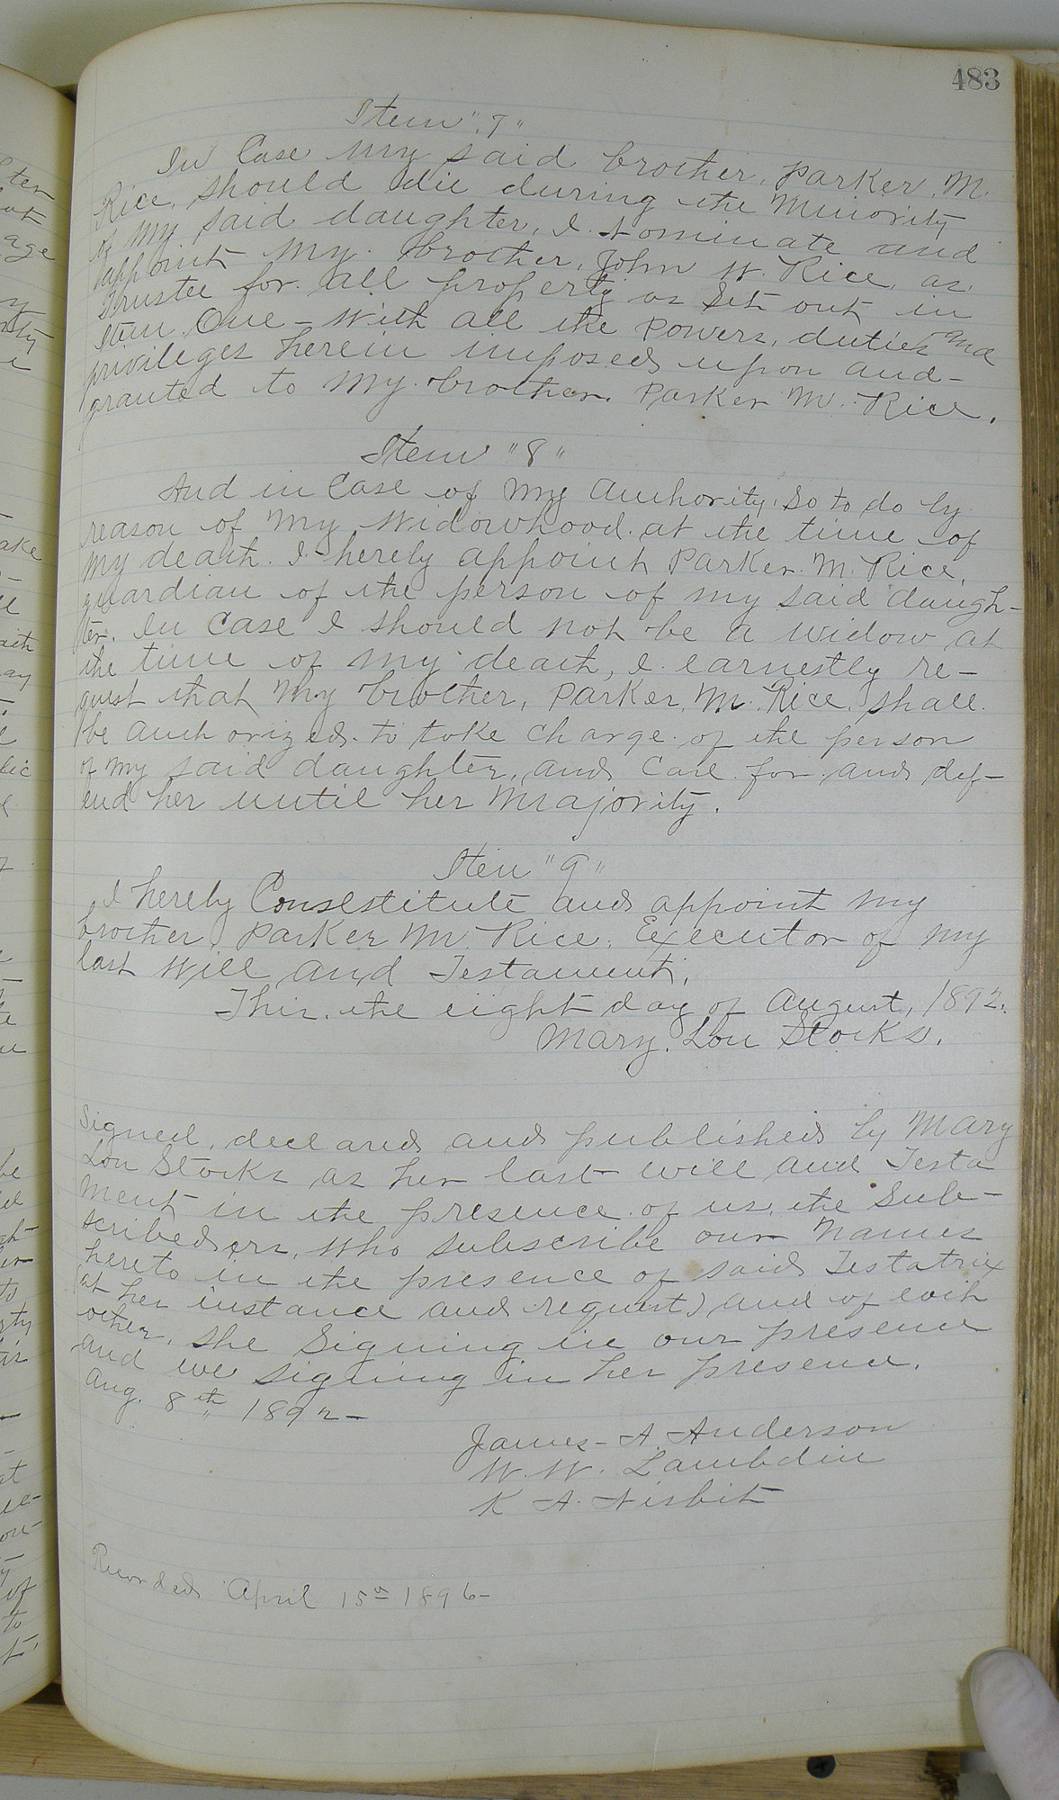 483
Item "7"
In Case my said brother, Parker M.
Rice, should die during the minority
of my said daughter, I nominate and
appoint my brother, John W. Rice, as
Trustee for all property as set out in
Item One - with all the powers, duties and
privileges herein imposed upon and-
granted to my brother, Parker M. Rice.
Item "8"
And in Case of my authority so to do by
reason of my widowhood at the time of
my death. I hereby appoint Parker M. Rice,
guardian of the person of my said daugh-
ter. In Case I should not be a widow at
the time of my death, I earnestly re-
quest that my brother, Parker M. Rice, shall
be authorized to take charge of the person
of my said daughter, and care for and def-
end her until her majority.
Item "9"
I hereby Consestitute and appoint my
brother, Parker M. Rice, Executor of my
last Will and Testament.
This, the eight day of August, 1892.
Mary. Lou Stocks.
Signed, declared and published by Mary
Lou Stocks as her last will and Testa
ment in the presence of us, the Sub-
scribeders, who subscribe our names
hereto in the presence of said Testatrix
at her instance and request) and of each
other, she Signing in our presence
and we signing in her presence.
Aug. 8th 1892-
James - A. Anderson
W. W. Lambdin
K A. Nisbit
Recorded April 15th 1896-